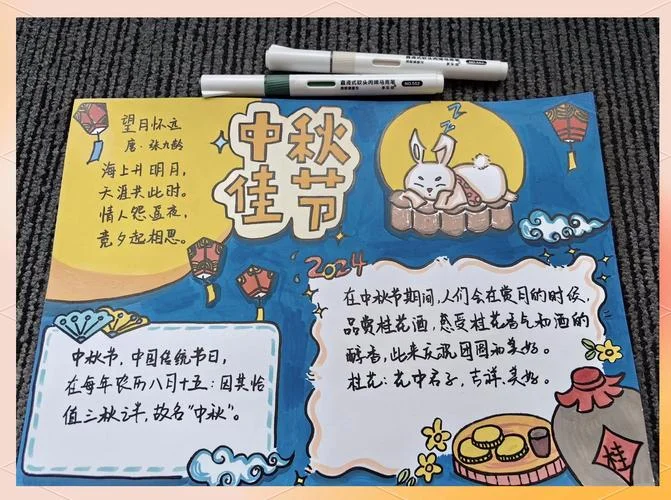 直液式软头丙烯马克笔
NO.552
中秋
佳节
望月怀远
唐·张九龄
海上升明月,
天涯共此时。
情人怨遥夜,
竟夕起相思。
2024
在中秋节期间,人们会在赏月的时候,
品赏桂花酒,感受桂花香气和酒的
醇香,以此来庆祝团圆和美好。
桂花:花中君子,吉祥、美好。
中秋节,中国传统节日,
在每年农历八月十五;因其恰
值三秋之半,故名“中秋”。
桂
zzz